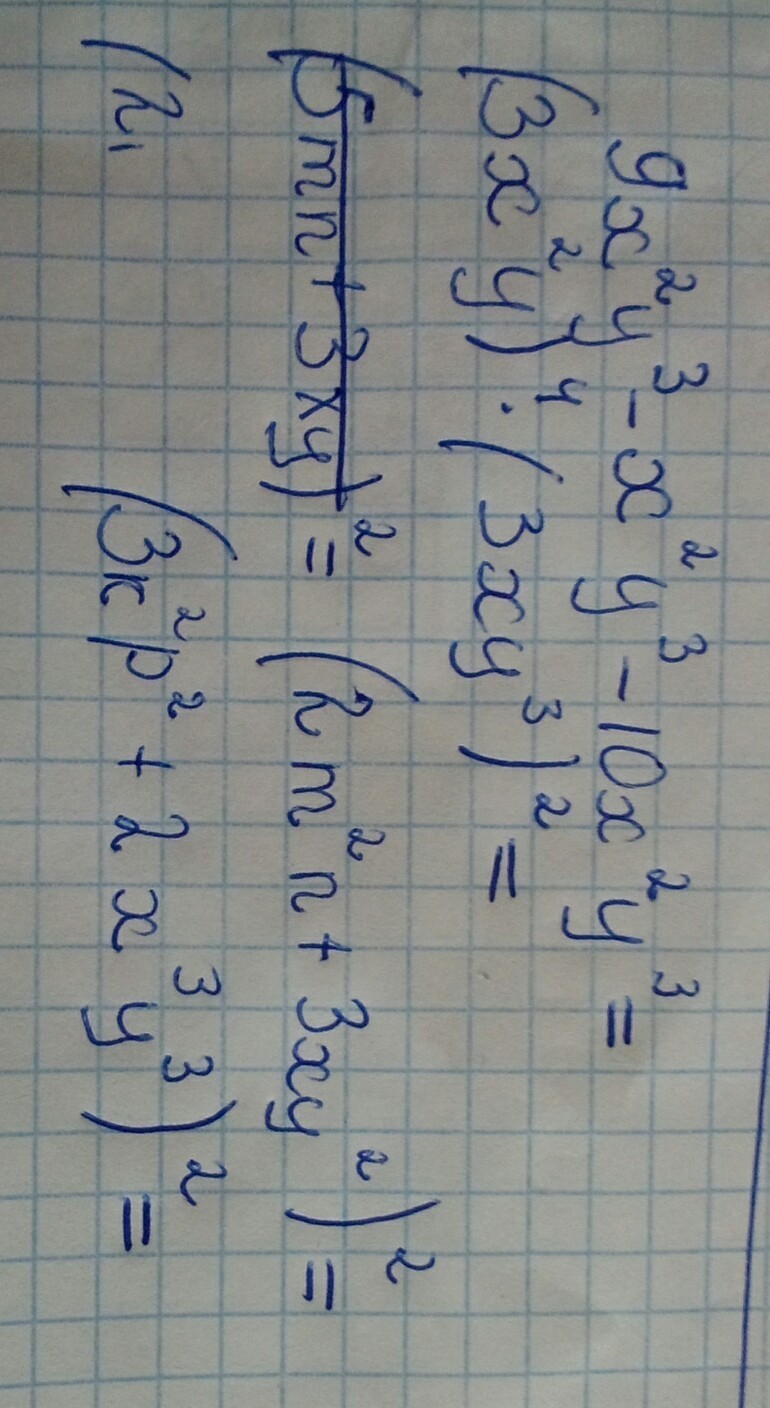 9x²y³ - x²y³ - 10x²y³ =
(3x²y)⁴ · (3xy³)² =
(5mn + 3xy)² = (2m²n + 3xy²)² =
(2, (3к²p² + 2x³y³)² =